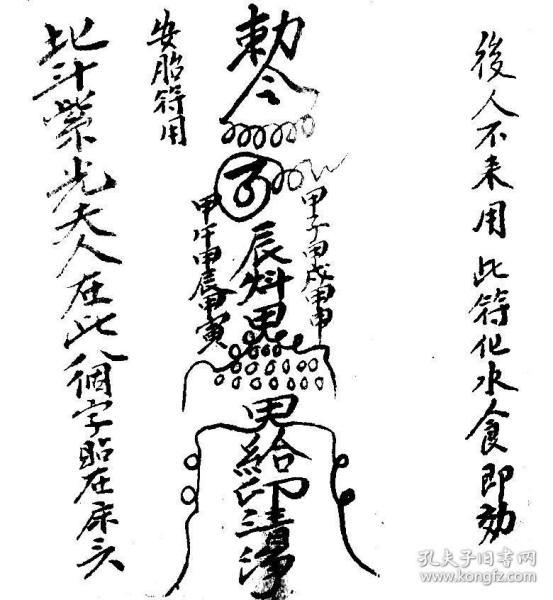 後人不来用此符化水食即効
勅令
甲子甲戌甲申
甲午甲辰甲寅
辰
男給印清净
安胎符用
北斗紫光夫人在此八個字貼在床头
孔夫子旧书网
www.kongfz.com